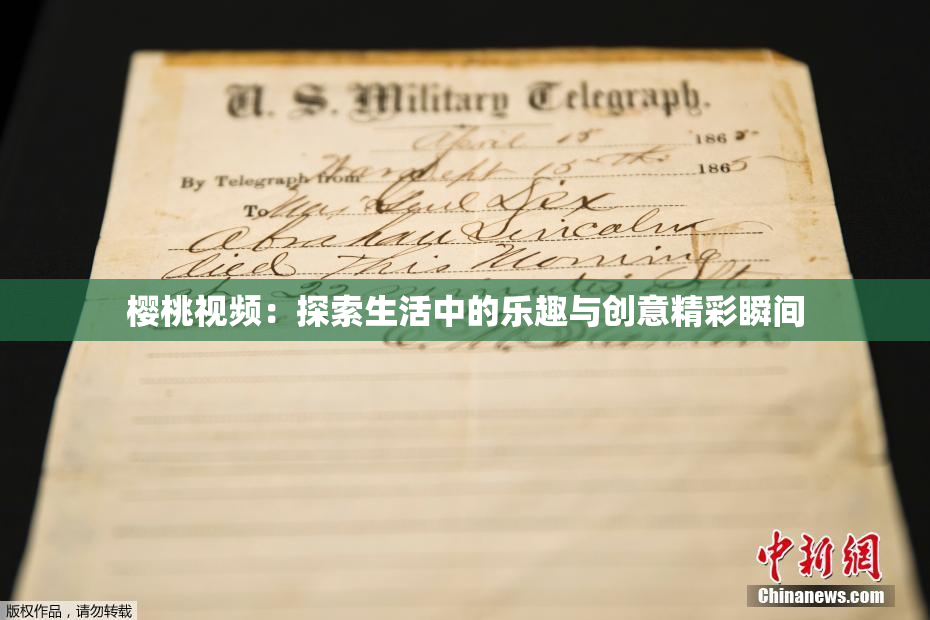 U. S. Military Telegraph.
April 15 1865
By Telegraph from War Dept 15th 1865
To Maj Genl Dix
Abraham Lincoln
died This Morning
at 22 minutes after
樱桃视频：探索生活中的乐趣与创意精彩瞬间
中新网
Chinanews.com
版权作品，请勿转载